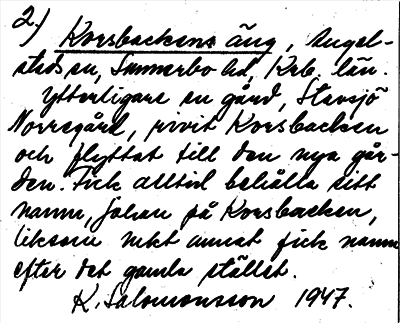 2.) Korsbackens äng, Angel-
stads sn, Sunnerbo hd, Krb. län.
Ytterligare en gård, Slavsjö
Norregård, rivit Korsbacken
och flyttat till den nya går-
den. Fick alltid behålla sitt
namn, Johan på Korsbacken,
liksom mkt annat fick namn
efter det gamla stället.
K. Salomonsson 1947.